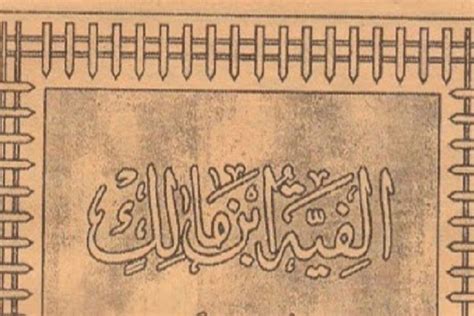 الفِيَّةُ ابن مالِكٍ